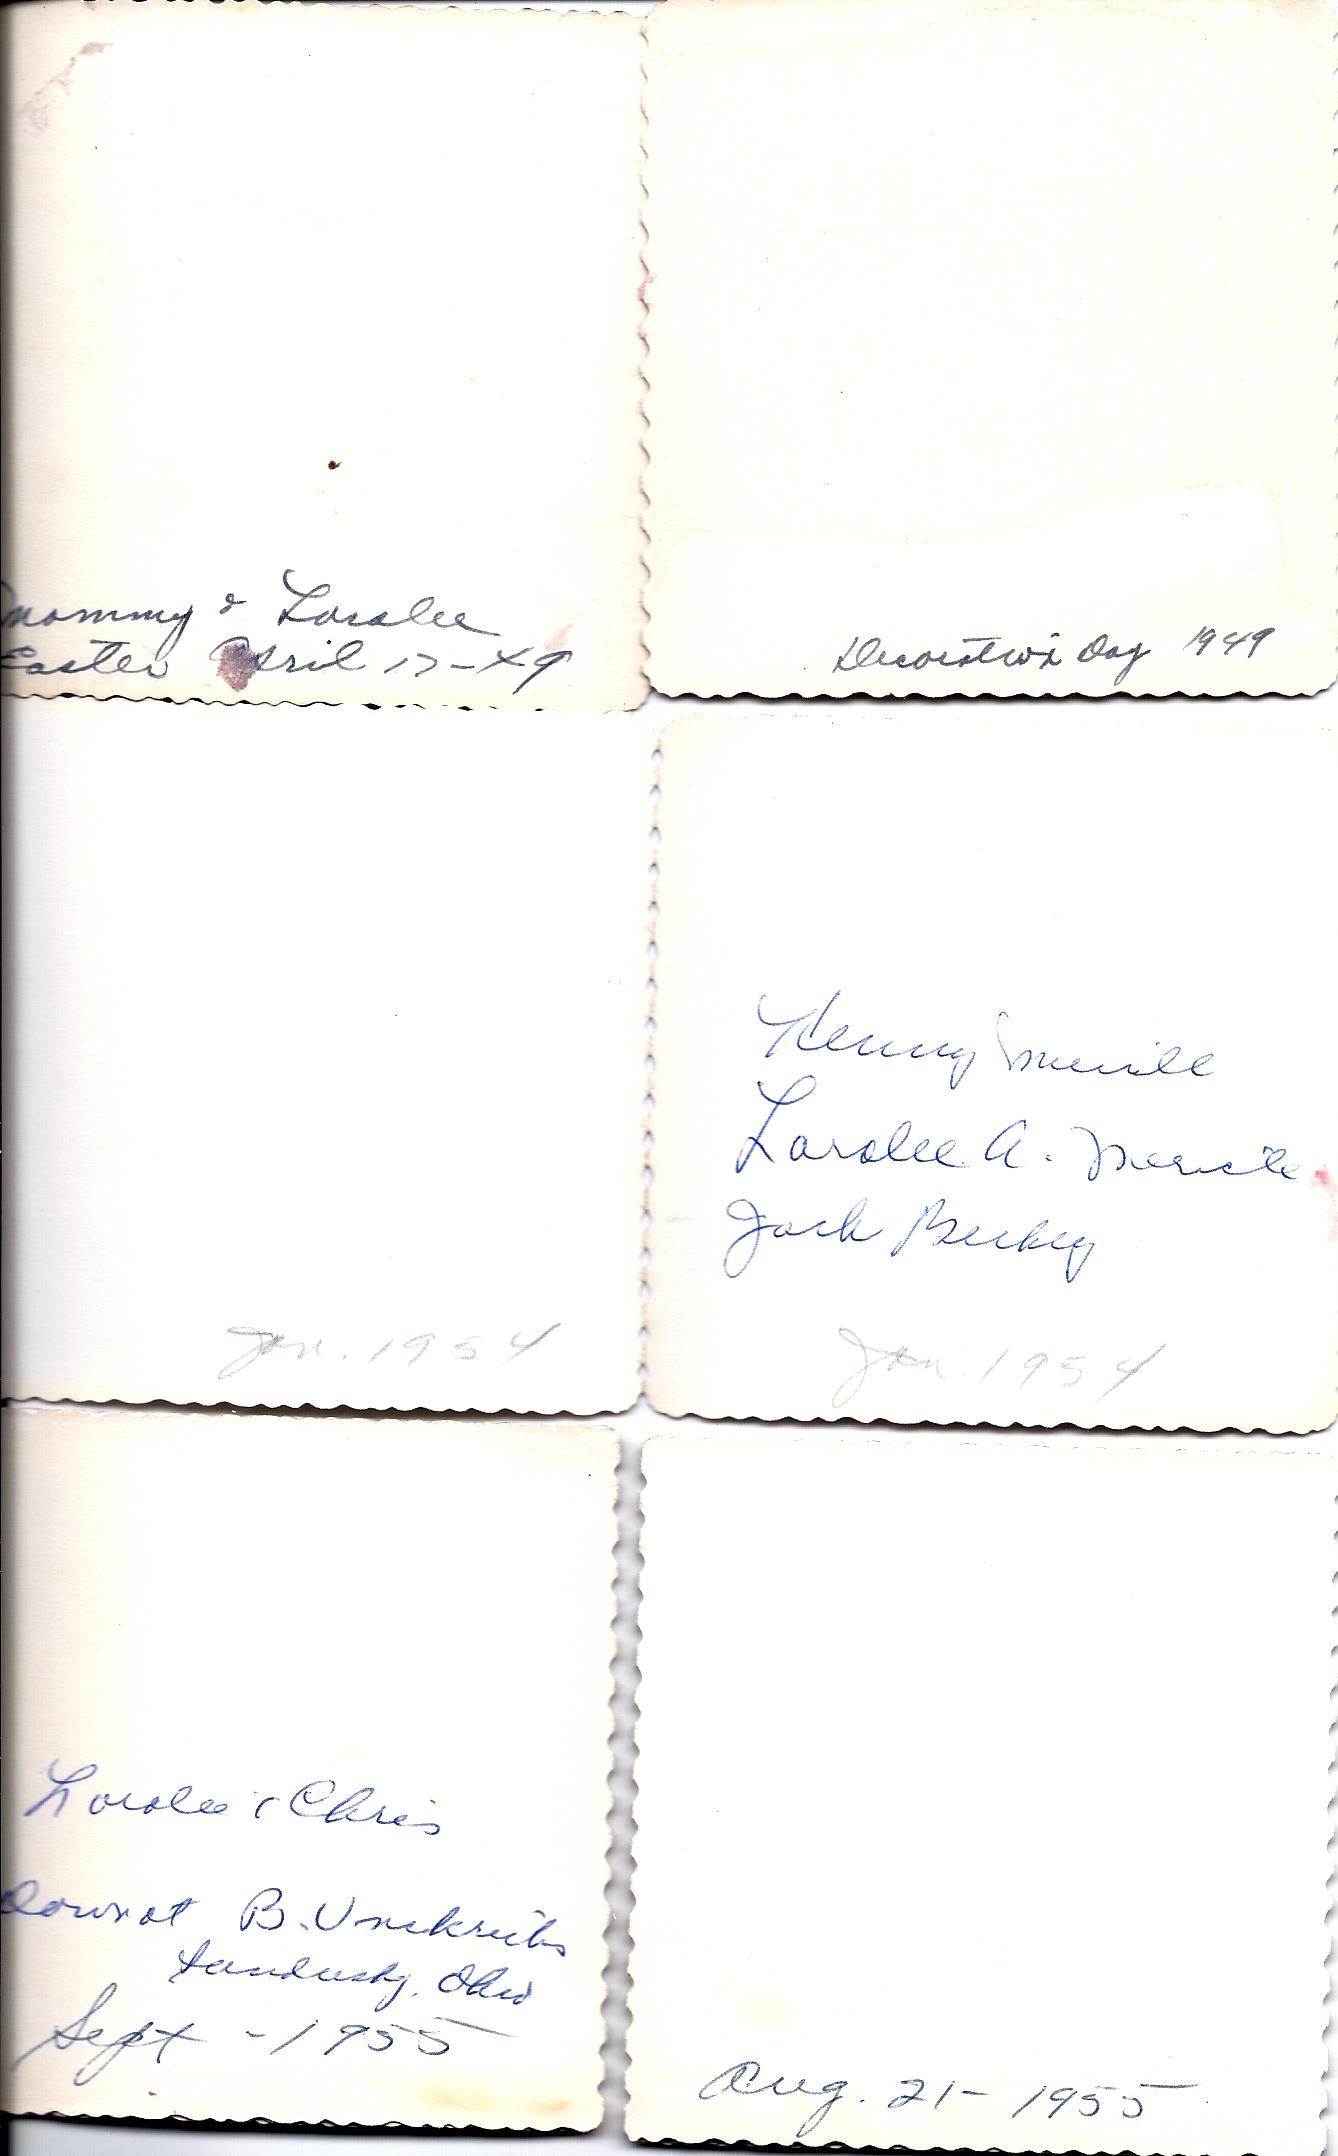 Mommy & Loralee
Easter April 17-49
Decoration Day 1949
Jan. 1954
Kenny Merrill
Loralee A. Merrill
Jack
Jan. 1954
Loralee & Chris
Down at B.
Sandusky, Ohio
Sept - 1955
Aug. 21 - 1955